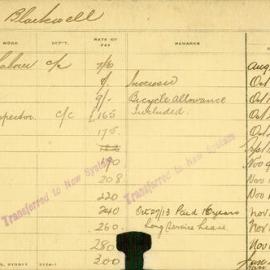 Blackwell
WORK DEP'T. RATE OF PAY REMARKS
Labour c/c 7/6 Aug
8/- Increase Oct
9/- Bicycle Allowance Oct
Inspector. C/C 165 Included. Oct
175
Sept
190 Nov
208 Nov
220 Nov
240 Oct 27/13 Paid 16 years Nov
260 Long Service Leave. Nov
280 Nov
300
Transferred to New System
Transferred to New System